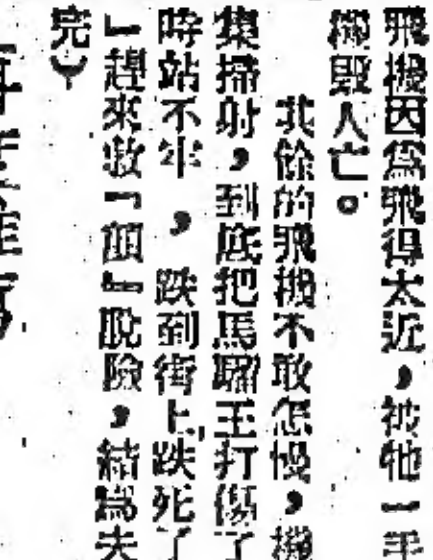 飛機因爲飛得太近，被牠一手
機毀人亡。
其餘的飛機不敢怠慢，機
集掃射，到底把馬騮王打傷了
時站不牢，跌到街上跌死了
』趕來救『顔』脫險，結爲夫
完）